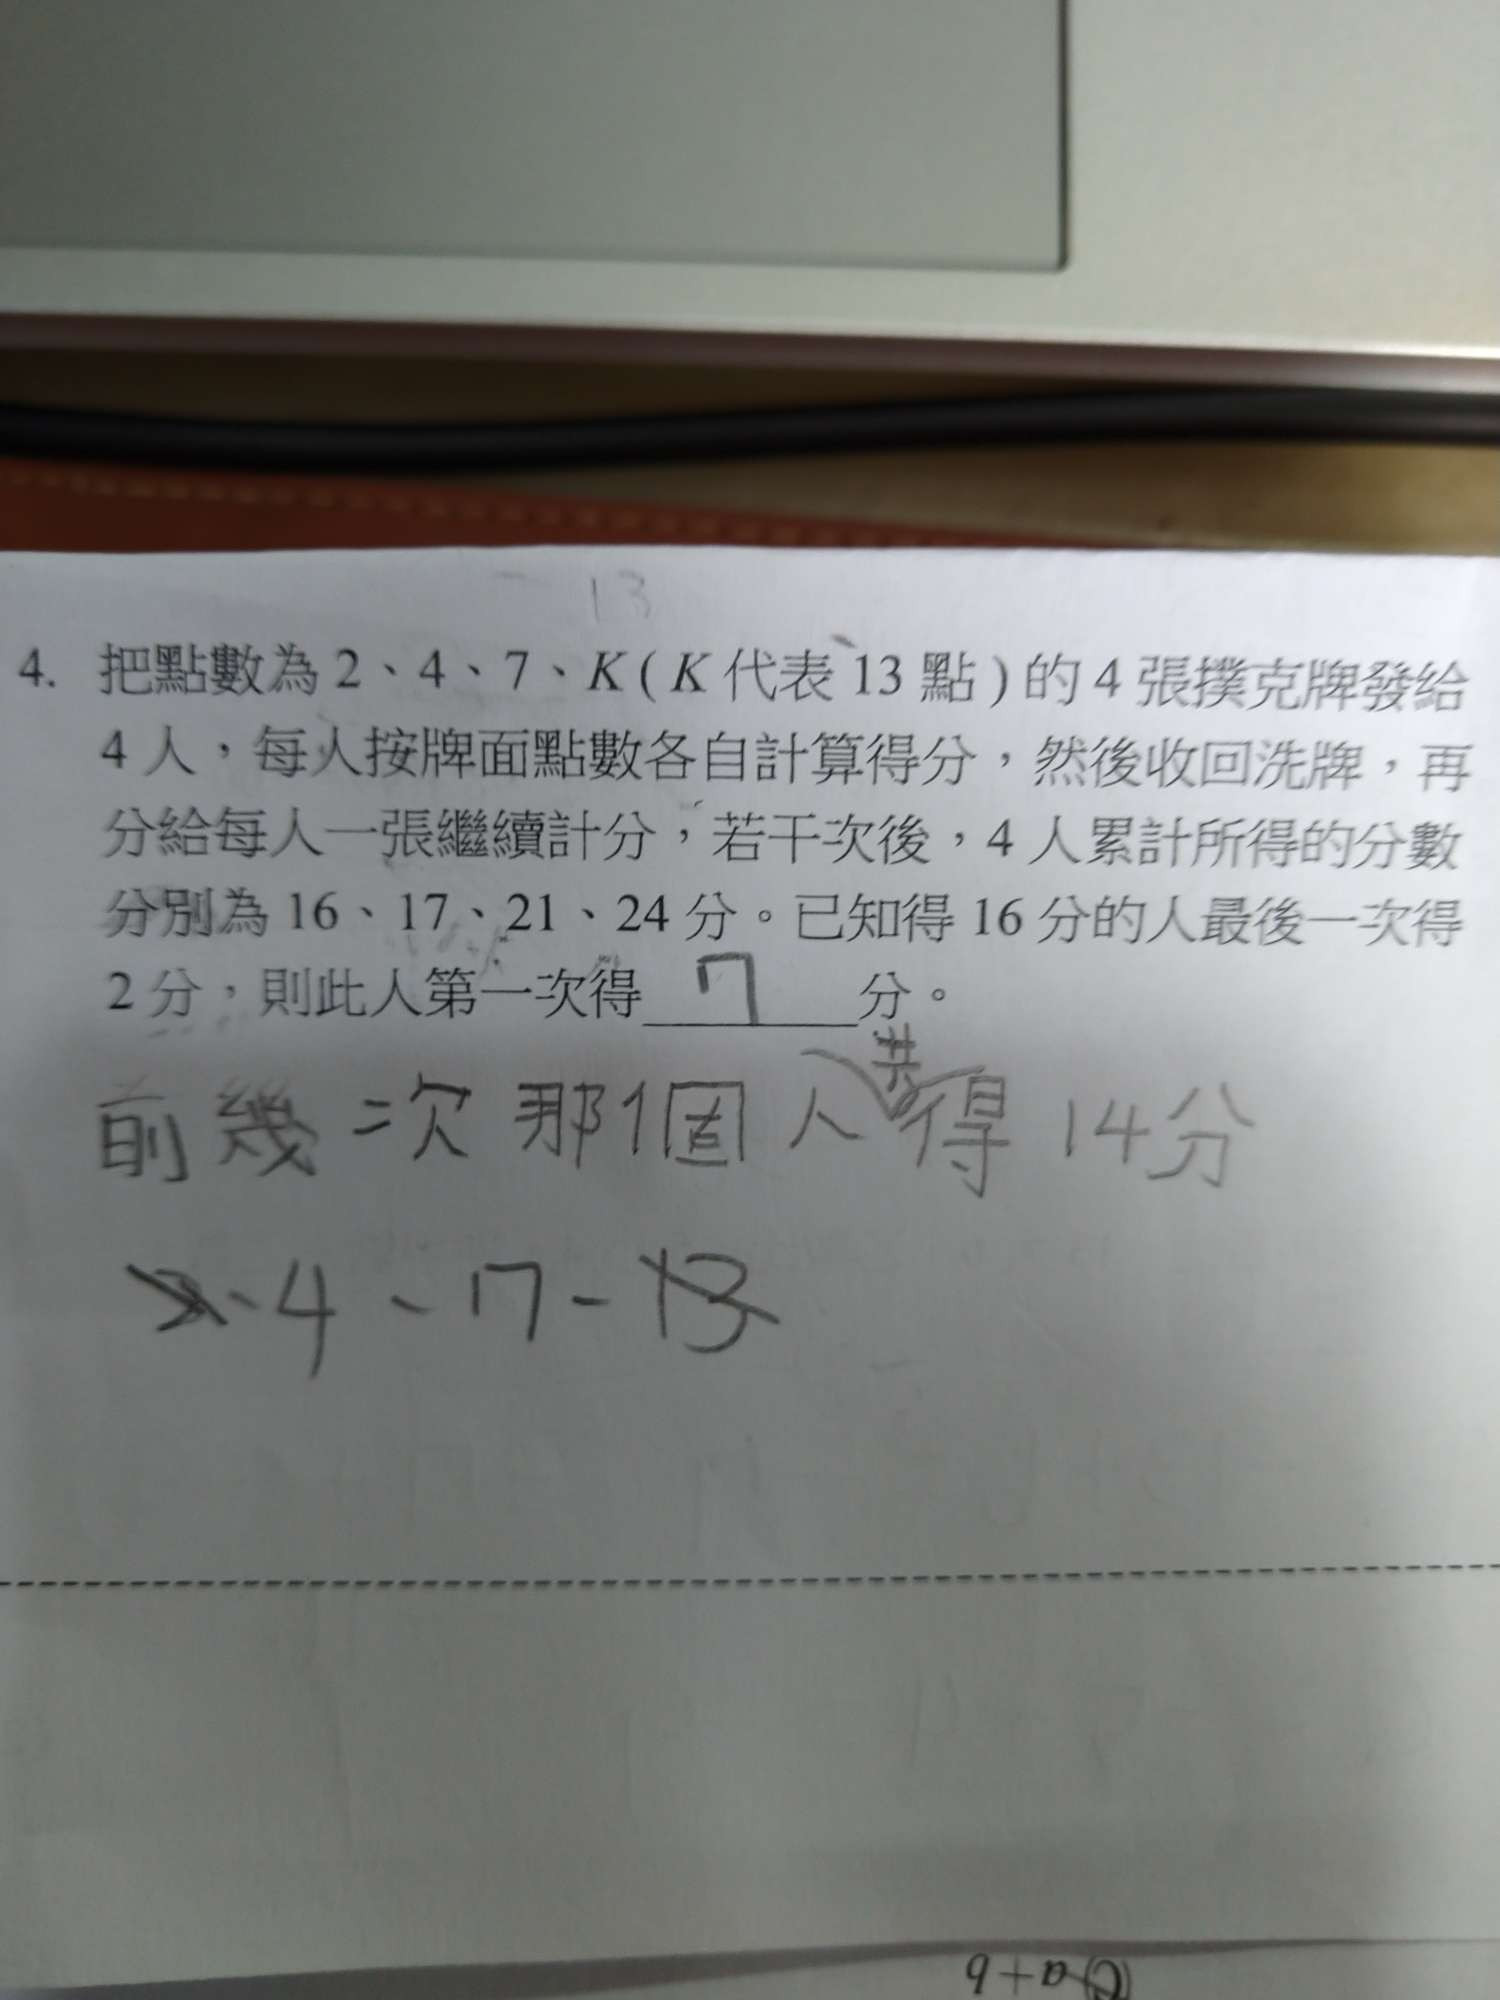 13
4. 把點數為 2、4、7、K ( K 代表 13 點 ) 的 4 張撲克牌發給
4 人，每人按牌面點數各自計算得分，然後收回洗牌，再
分給每人一張繼續計分，若干次後，4 人累計所得的分數
分別為 16、17、21、24 分。已知得 16 分的人最後一次得
2 分，則此人第一次得 7 分。
前幾次那個人共得 14分
2、4、7、13
a+b